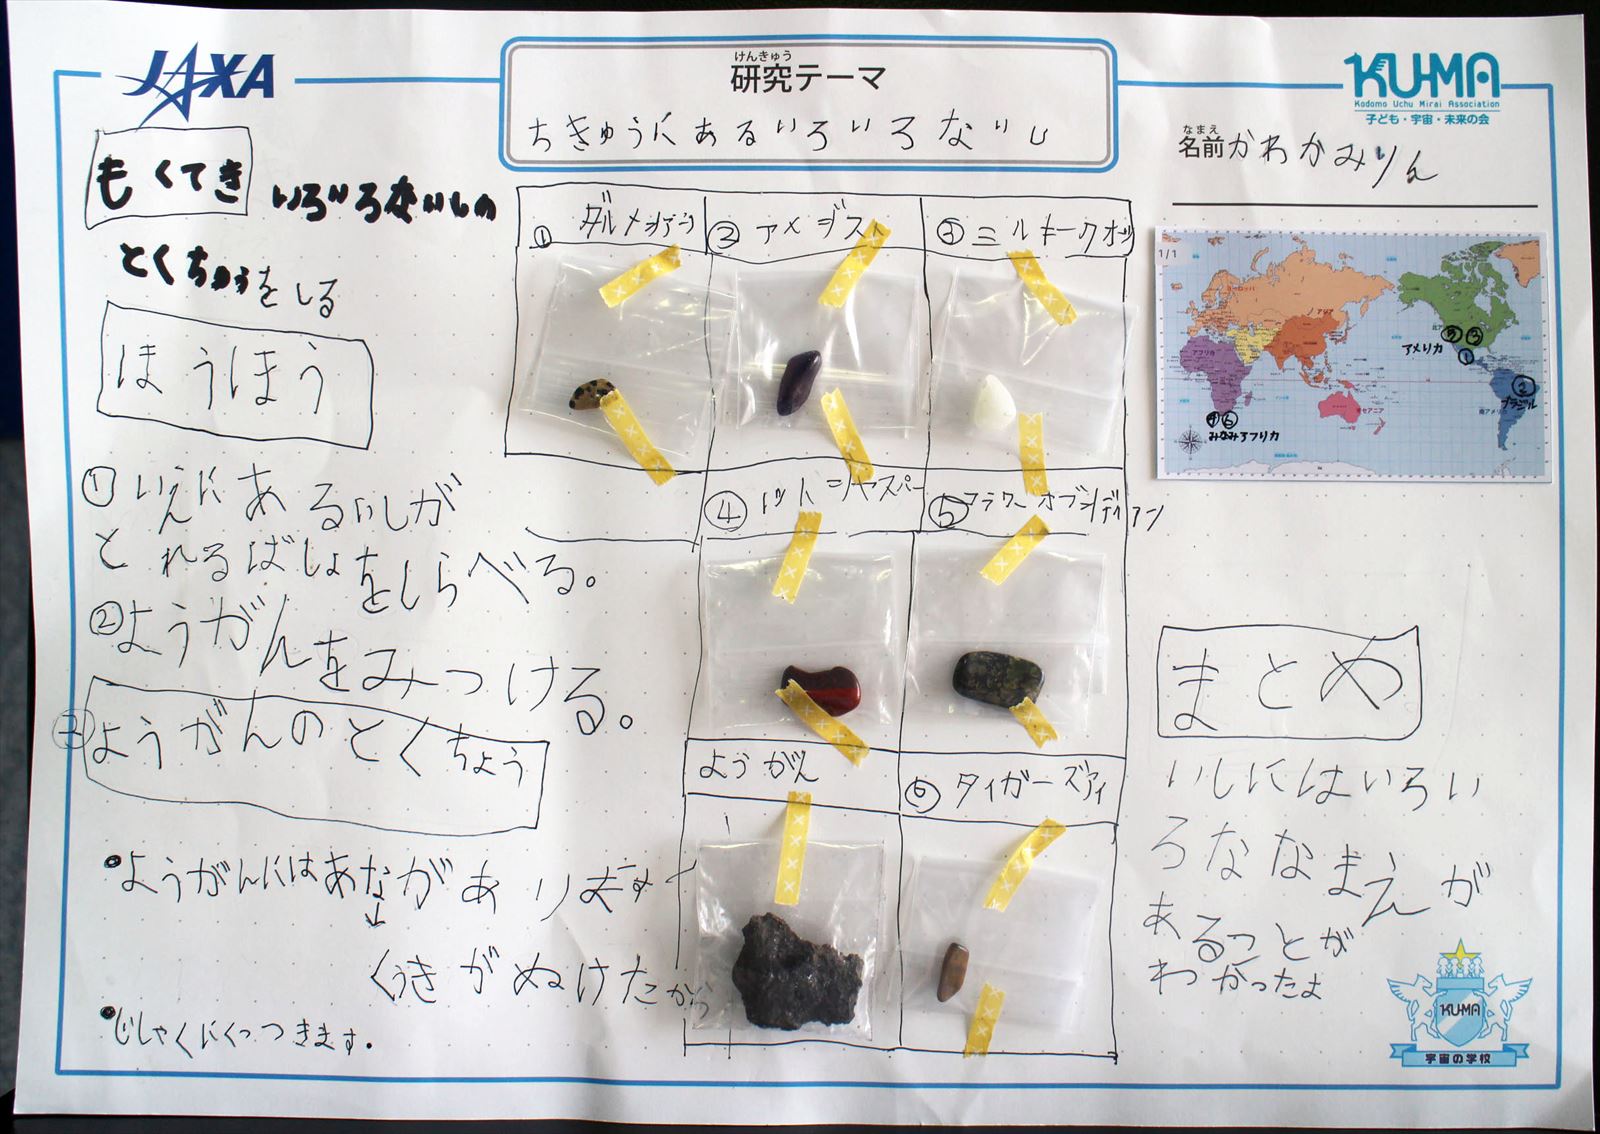 JAXA
けんきゅう
研究テーマ
ちきゅうにあるいろいろないし
KU-MA
Kodomo Uchu Mirai Association
子ども・宇宙・未来の会
なまえ
名前 かわかみりん
もくてき
いろいろないしの
とくちょうをしる
ほうほう
① いえにあるいしが
とれるばしょをしらべる。
② ようがんをみつける。
ようがんのとくちょう
・ようがんにはあながあります
↓
くうきがぬけたから
・じしゃくにくっつきます。
① ダルメシアン
② アメジスト
③ ミルキークオツ
④ レットジャスパー
⑤ フラワーオブシディアン
ようがん
⑥ タイガーズアイ
1/1
ヨーロッパ
アジア
アフリカ
オセアニア
北ア
南アメリカ
アメリカ
⑤ ③
①
②
ブラジル
④ ⑥
みなみアフリカ
まとめ
いしにはいろい
ろななまえが
あることが
わかったよ
KU-MA
宇宙の学校